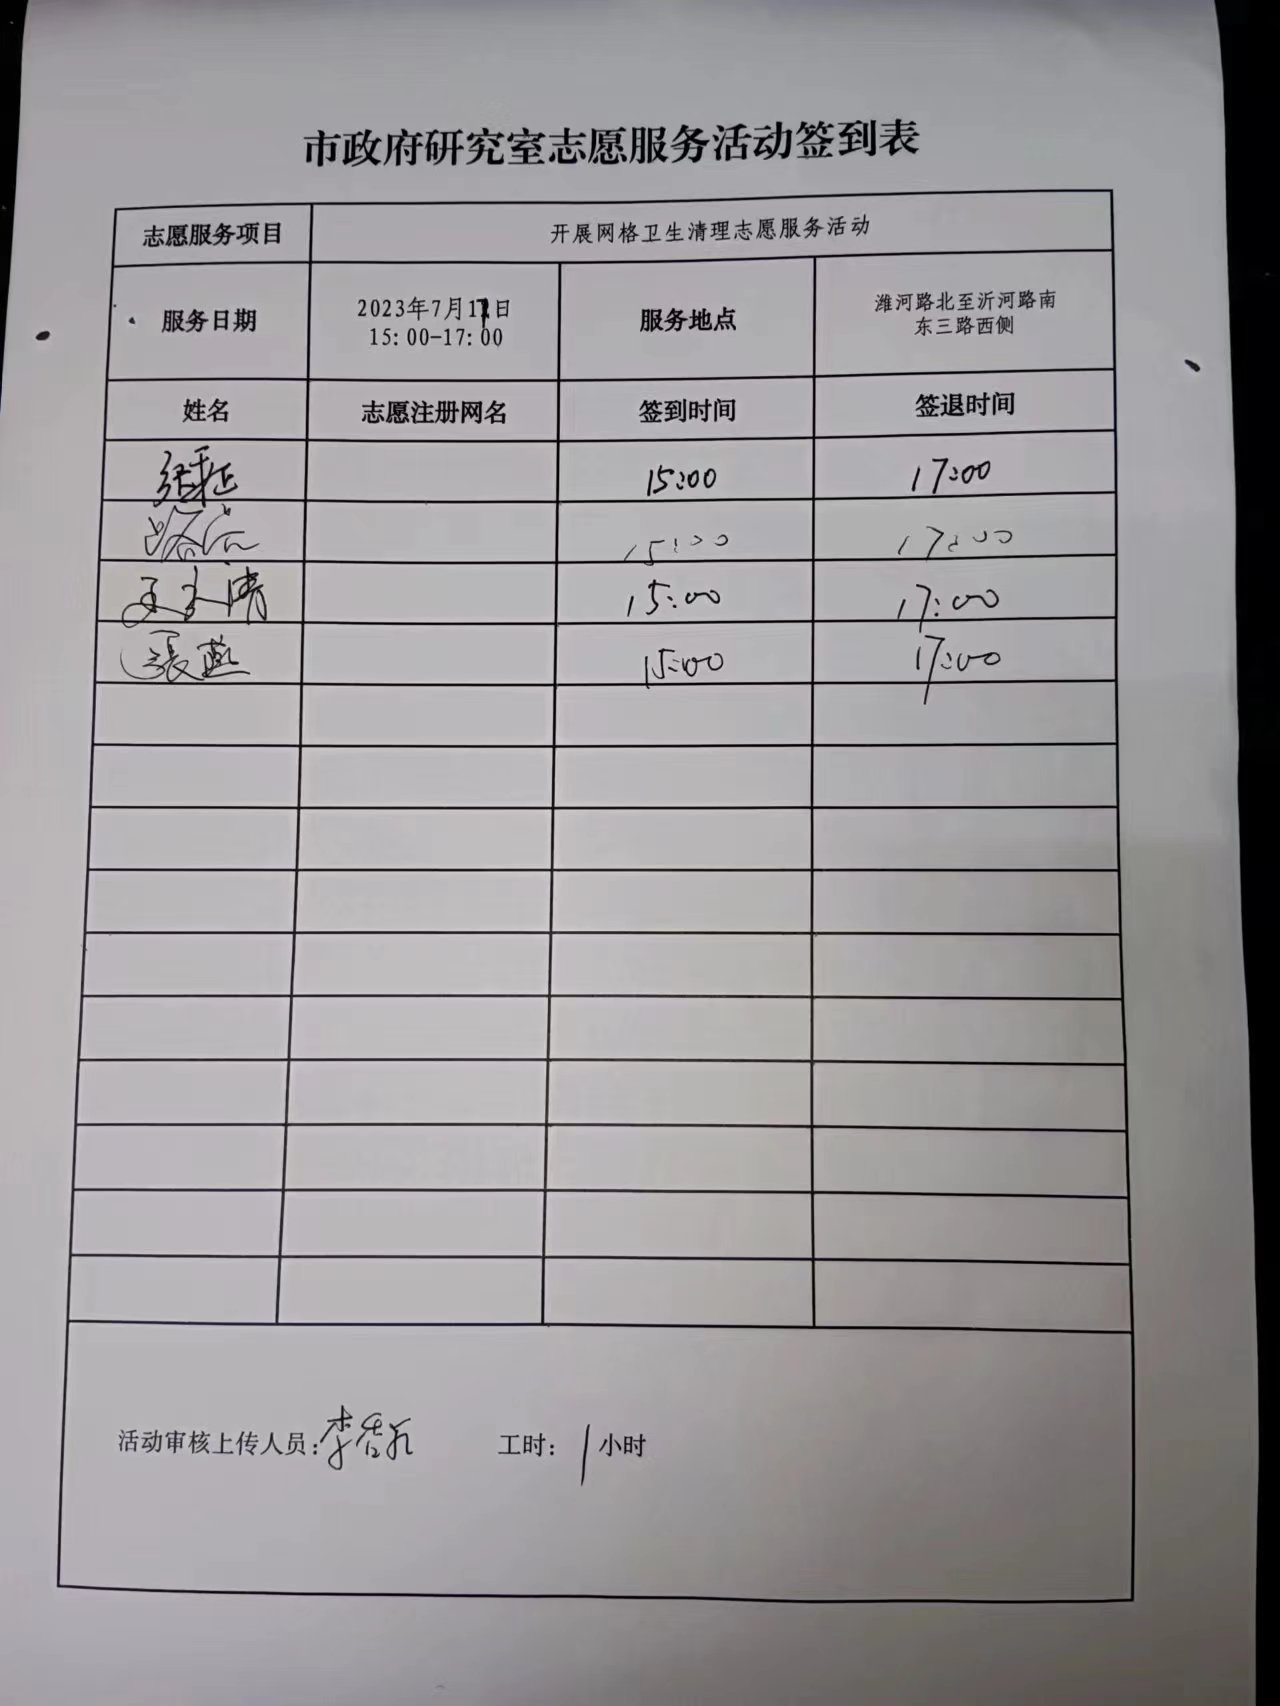 市政府研究室志愿服务活动签到表
志愿服务项目 开展网格卫生清理志愿服务活动
服务日期 2023年7月17日 15:00-17:00 服务地点 潍河路北至沂河路南 东三路西侧
姓名 志愿注册网名 签到时间 签退时间
15:00 17:00
15:00 17:00
15:00 17:00
張燕 15:00 17:00
活动审核上传人员: 工时: 1 小时